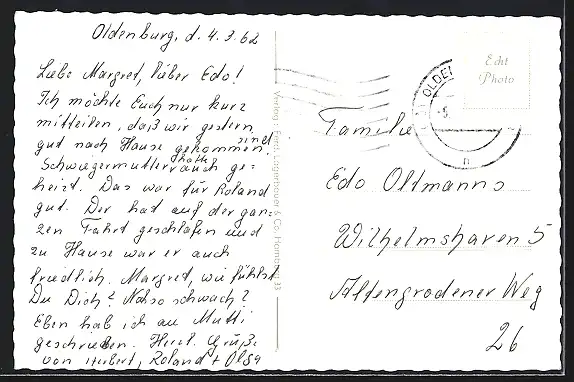 Oldenburg, d. 4.3.62
Liebe Margret, lieber Edo!
Ich möchte Euch nur kurz
mitteilen, daß wir gestern
gut nach Hause gekommen sind.
Schwiegermutter hatte auch ge=
heizt. Das war für Roland
gut. Der hat auf der gan=
zen Fahrt geschlafen und
zu Hause war er auch
friedlich. Margret, wie fühlst
Du Dich? Noch so schwach?
Eben hab ich an Mutti
geschrieben. Herzl. Grüße
von Hubert, Roland + Olga
Verlag: Ferd. Lagerbauer & Co., Hamburg 33
Echt
Photo
OLDE
Familie
Edo Oltmanns
Wilhelmshaven 5
Altengrodener Weg
26